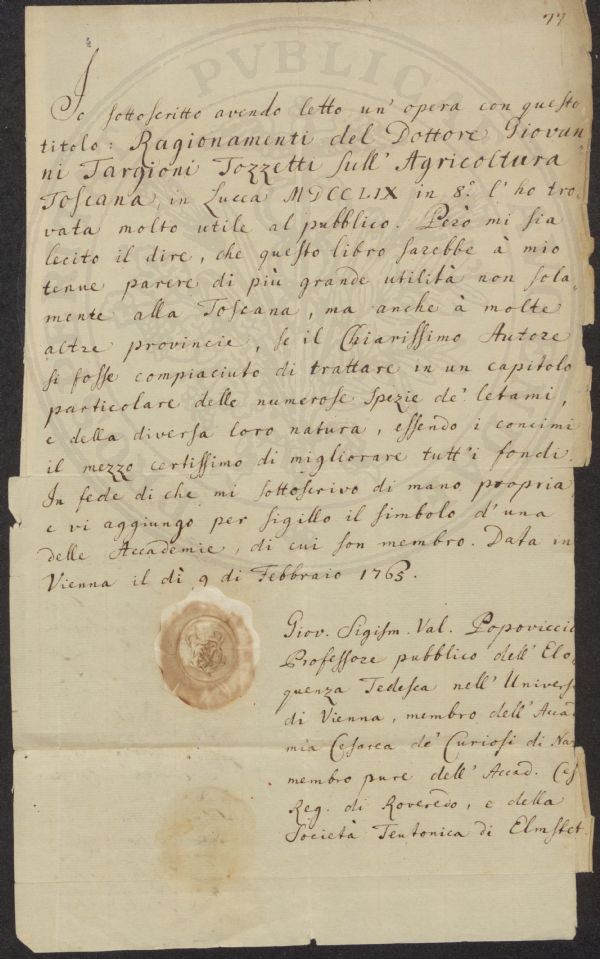 77
Io sottoscritto avendo letto un' opera con questo
titolo: Ragionamenti del Dottore Giovan
ni Targioni Tozzetti sull' Agricoltura
Toscana, in Lucca MDCCLIX in 8.º l' ho tro,
vata molto utile al pubblico. Però mi sia
lecito il dire, che questo libro sarebbe à mio
tenue parere di più grande utilità non sola,
mente alla Toscana, ma anche à molte
altre provincie, se il Chiarissimo Autore
si fosse compiaciuto di trattare in un capitolo
particolare delle numerose spezie de' letami,
e della diversa loro natura, essendo i concimi
il mezzo certissimo di migliorare tutt' i fondi.
In fede di che mi sottoscrivo di mano propria
e vi aggiungo per sigillo il simbolo d' una
delle Accademie, di cui son membro. Data in
Vienna il dì 9 di Febbraio 1765.
Giov. Sigism. Val. Popoviccio
Professore pubblico dell' Elo,
quenza Tedesca nell' Univers
di Vienna, membro dell' Accad
mia Cesarea de' Curiosi di Na
membro pure dell' Accad. Ces
Reg. di Roveredo, e della
Società Teutonica di Elmstet.
PVBLICA